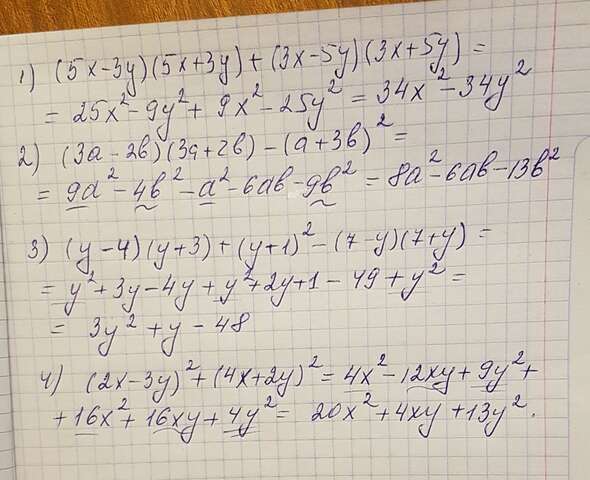 1) (5x-3y)(5x+3y)+(3x-5y)(3x+5y)=
=25x²-9y²+9x²-25y²=34x²-34y²
2) (3a-2b)(3a+2b)-(a+3b)²=
=9a²-4b²-a²-6ab-9b²=8a²-6ab-13b²
3) (y-4)(y+3)+(y+1)²-(7-y)(7+y)=
=y²+3y-4y+y²+2y+1-49+y²=
=3y²+y-48
4) (2x-3y)²+(4x+2y)²=4x²-12xy+9y²+
+16x²+16xy+4y²=20x²+4xy+13y².